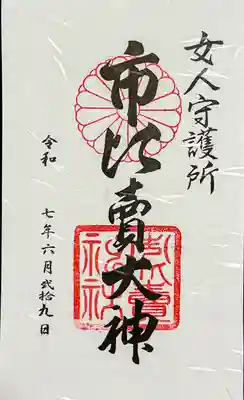 女人守護所
市比賣大神
令和 七年六月弐拾九日
市比賣神社